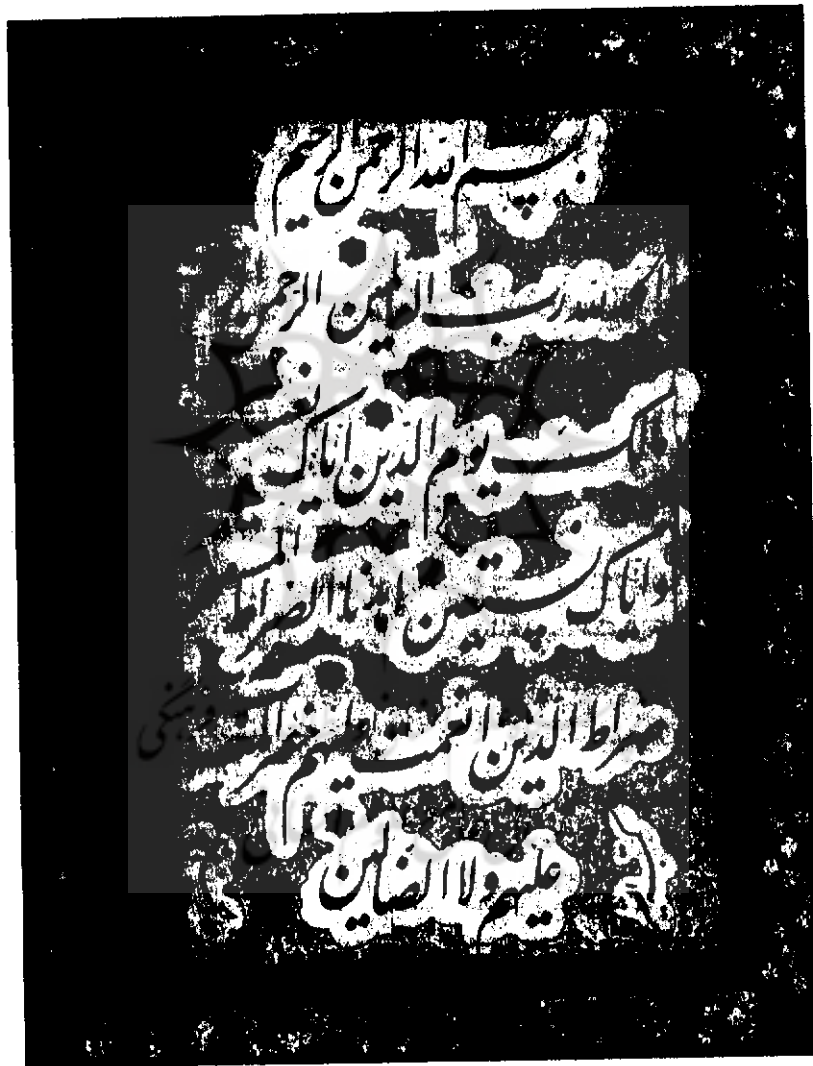 بسم الله الرحمن الرحیم
الحمد لله رب العالمین الرحمن
الرحیم
مالک یوم الدین ایاک نعبد
وایاک نستعین اهدنا الصراط
المستقیم
صراط الذین انعمت علیهم غیر المغضوب
علیهم ولا الضالین